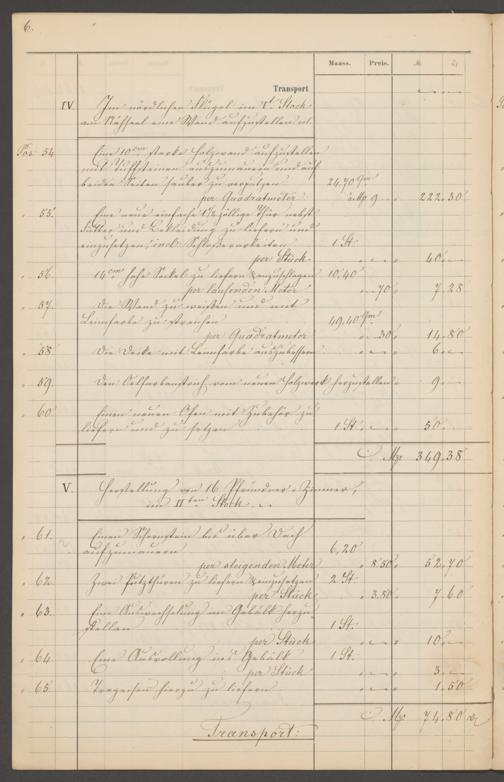 6.
Maass. Preis. M. ₰
Transport
IV. Im nördlichen Flügel im Iten Stock
am Nähsaal eine Wand aufzustellen etc.
Pos. 54. Eine 10cm starke Holzwand aufzustellen
mit Tuffsteinen auszumauern und auf
beiden Seiten sauber zu verputzen 24,70 qm
per Quadratmeter à Mp 9 222.30
" 55. Eine neue einfache 1½ zöllige Thür nebst
Futter und Bekleidung zu liefern und
einzusetzen, incl. Schlosserarbeiten 1 St.
per Stück 40
" 56. 14cm hohe Sockel zu liefern & anzuschlagen 10,40
per laufenden Meter 70 7.28
" 57. Die Wand zu weissen und mit
Leimfarbe zu streichen 49,40 qm
per Quadratmeter 30 14.80
" 58. Die Decke mit Leimfarbe auszubessern 6
" 59. Den Oelfarbanstrich vom neuen Holzwerk herzustellen 9
" 60. Einen neuen Ofen mit Zubehör zu
liefern und zu setzen 1 St. 50
Mp 349.38
V. Herstellung von 16 Pfründner-Zimmer,
im IIten Stock
" 61. Einen Schornstein bis über Dach
aufzumauern 6,20
per steigenden Meter 8.50 52.70
" 62. Zwei Putzthüren zu liefern & einzusetzen 2 St.
per Stück 3.80 7.60
" 63. Eine Auswechselung im Gebälk herzu-
stellen 1 St.
per Stück 10
" 64. Eine Ausrollung ins Gebälk 1 St.
per Stück 3
" 65. Trageisen hierzu zu liefern 1.50
Mp 74.80
Transport: